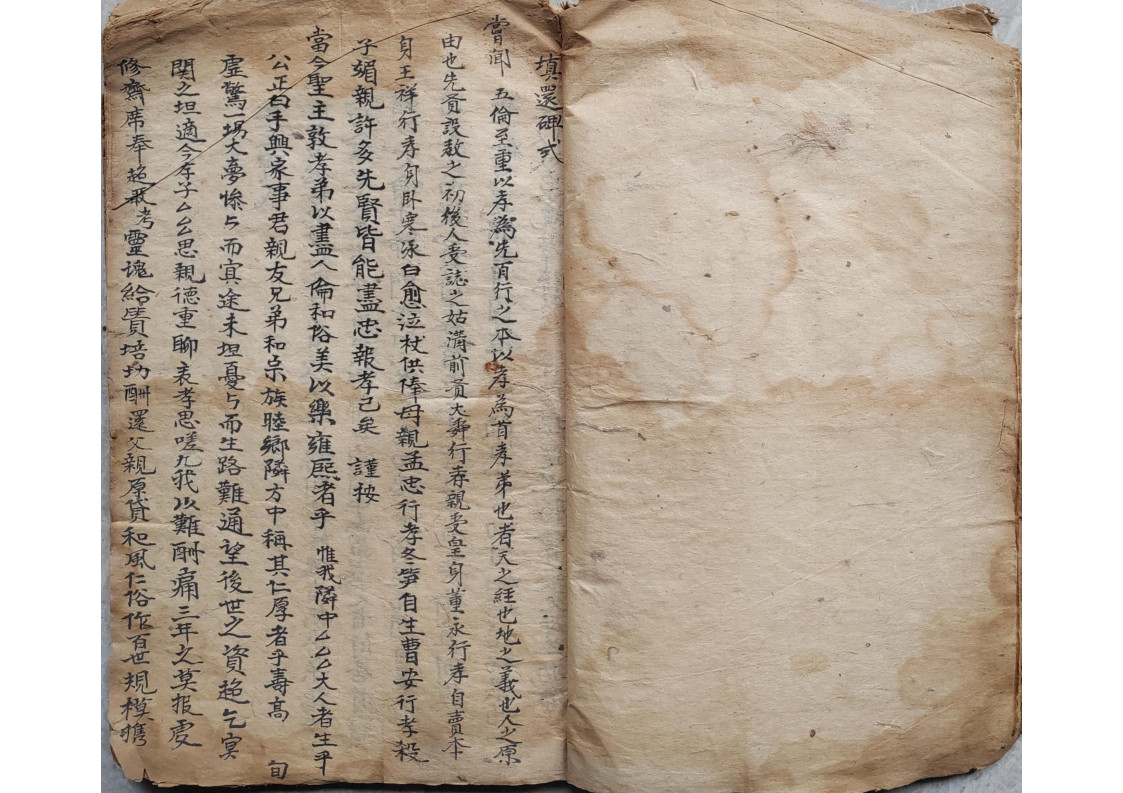 填還碑式
嘗聞 五倫至重以孝為先百行之本以孝為首孝弟也者天之經也地之義也人之原
由也先賢設教之初後人受誌之姑溝前賢大舜行孝親受皇身董永行孝自賣本
身王祥行孝身卧寒冰白愈泣杖供俸母親孟忠行孝冬笋自生曹安行孝殺
子媚親許多先賢皆能盡忠報孝己矣 謹按
當今聖主敦孝弟以盡人倫和俗美以樂雍熙者乎 惟我隣中厶厶厶大人者生乎
公正白手興家事君親友兄弟和宗族睦鄉隣方中稱其仁厚者乎壽高 旬
虛驚一場大夢慘与而寘途未坦憂与而生路難通望後世之資超乞寘
関之坦適今孝子厶厶思親德重聊表孝思嗟九我以難酬痛三年之莫报虔
修齋席奉超 考靈魂給賞培功酬還父親原貸和風仁俗作百世規模携